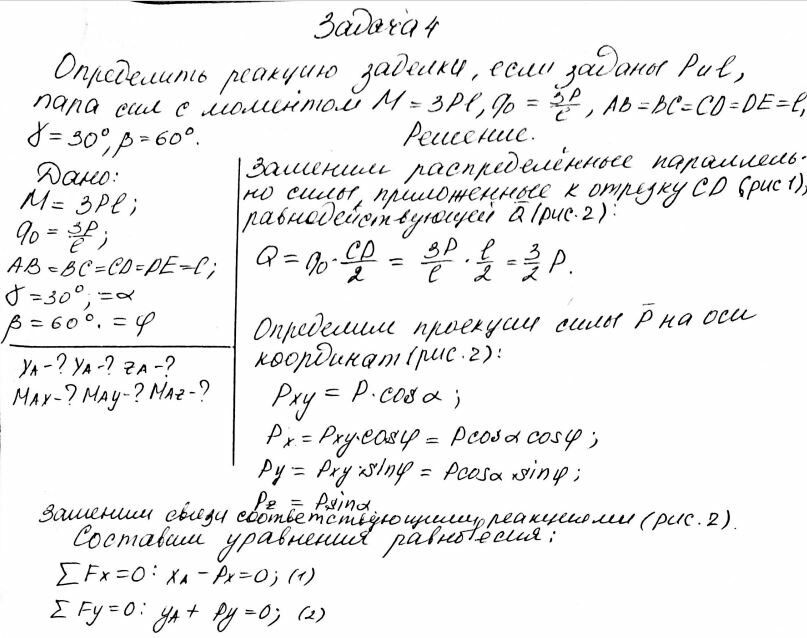 Задача 4
Определить реакцию заделки, если заданы P и l,
пара сил с моментом M = 3Pl, q0 = 3P/l, AB=BC=CD=DE=l,
γ = 30°, β = 60°.
Решение.
Дано:
M = 3Pl;
q0 = 3P/l;
AB=BC=CD=DE=l;
γ = 30°; = α
β = 60°. = φ
YA - ? YA - ? ZA - ?
MAX - ? MAY - ? MAZ - ?
Заменим распределённые параллель-
но силы, приложенные к отрезку CD (рис 1),
равнодействующей Q̄ (рис. 2):
Q = q0 · CD/2 = 3P/l · l/2 = 3/2 P.
Определим проекции силы P̄ на оси
координат (рис. 2):
Pxy = P · cosα;
Px = Pxy·cosφ = Pcosα cosφ;
Py = Pxy·sinφ = Pcosα·sinφ;
Pz = Psinα
Заменим связи соответствующими реакциями (рис. 2).
Составим уравнения равновесия:
∑Fx=0: XA - Px=0; (1)
∑Fy=0: YA + Py=0; (2)